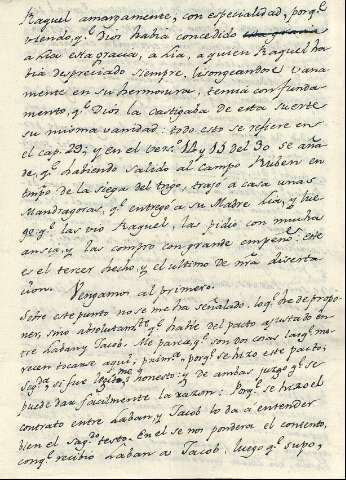 Raquel amargamente, con especialidad, porq.e
viendo, q.e Dios habia concedido esta gracia
a Lia esta gracia, a Lia, a quien Raquel ha
bia despreciado siempre, lisongeandose vana
mente en su hermosura; temia con funda
mento, q.e Dios la castigaba de esta suerte
su misma vanidad: todo esto se refiere en
el cap. 29; y en el vers.o 14 y 15 del 30 se aña
de, q.e habiendo salido al campo Ruben en
tmpo de la siega del trigo, trajo a casa unas
Mandragoras, q.e entregó a su Madre Lia, y lue
go q.e las vio Raquel, las pidio con mucha
ansia, y las compro con grande empeño: este
es el tercer hecho, y el ultimo de nra diserta
cion. Vengamos al primero.
Sobre este punto no se me ha señalado, lo q.e he de propo
ner, sino absolutam.te q.e hable del pacto ajustado en
tre Laban y Jacob. Me parece, q.e son dos cosas las q.e me
recen tocarse aqui; prim.a, porq.e se hizo este pacto;
seg.da, si fue licito, y honesto: y de ambas juzgo q.e se
puede dar facilmente la razon: Porq.e se hizo el
contrato entre Laban, y Jacob lo da a entender
bien el Sag.do texto. En el se nos pondera el contento,
con q.e recibió Laban a Jacob, luego q.e supo,